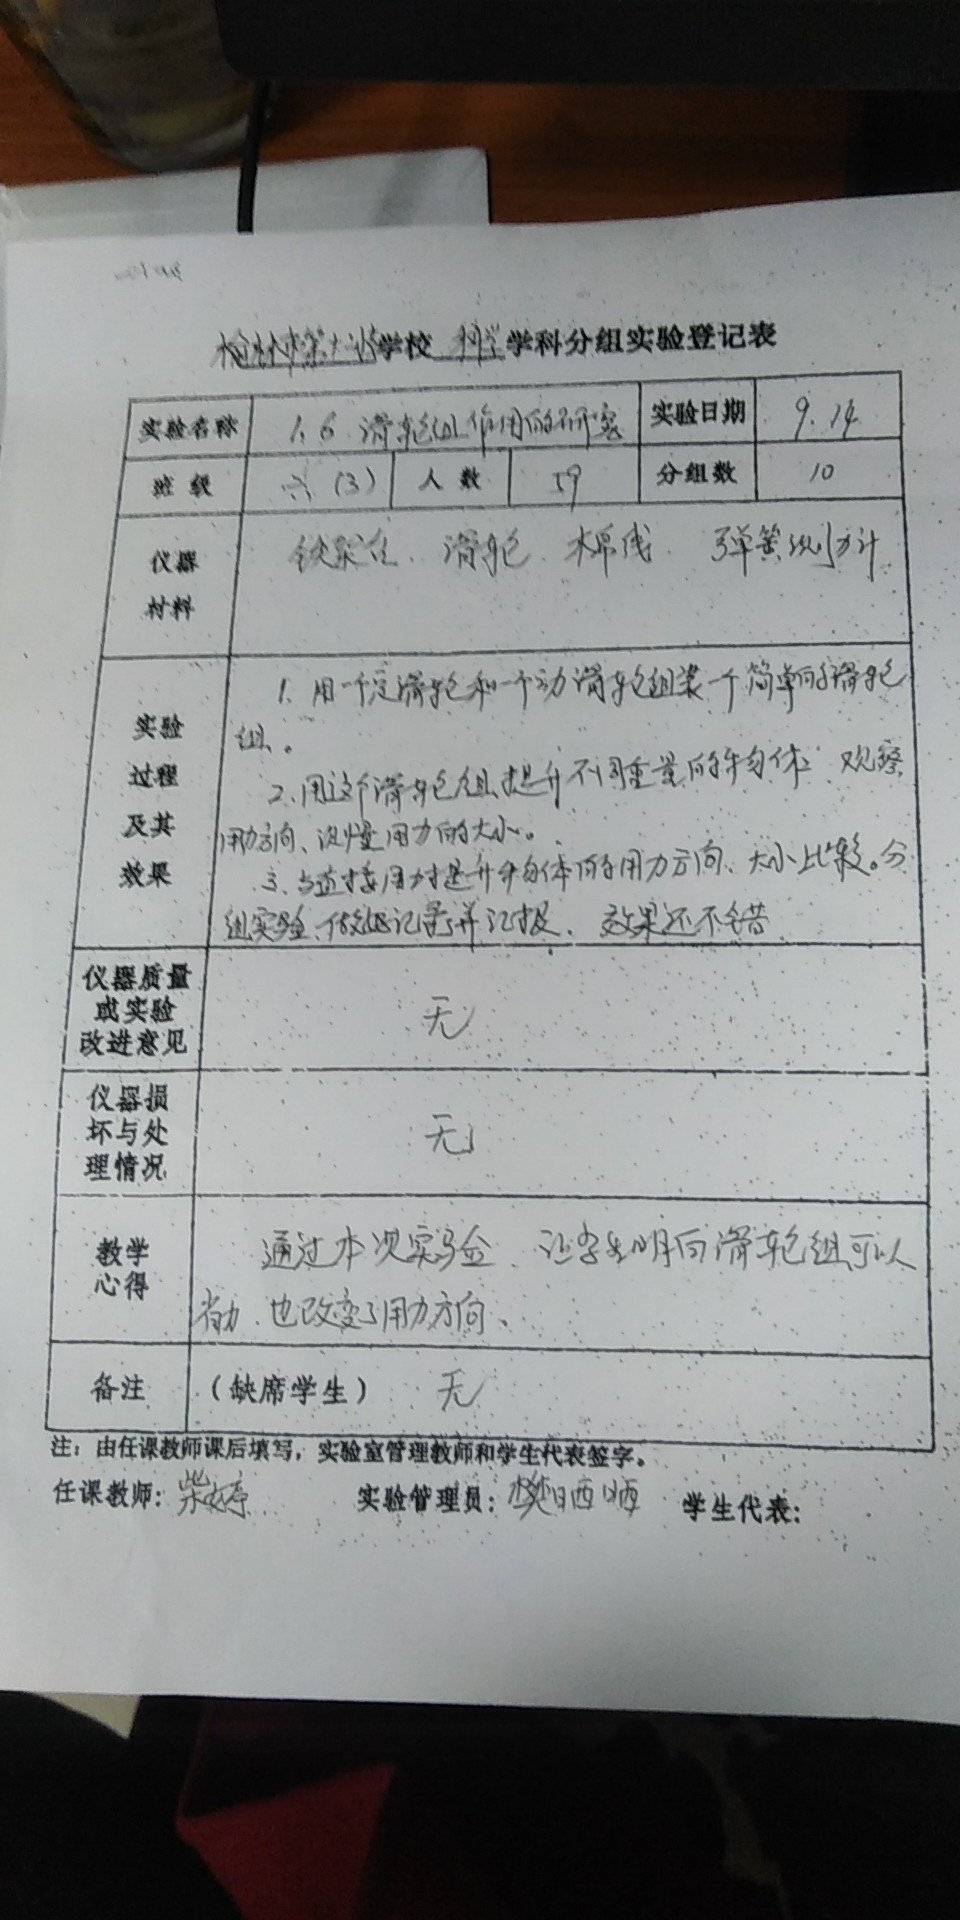 榆林市第十二小学校 科学学科分组实验登记表
实验名称 1.6 滑轮组作用的研究 实验日期 9.14
班级 六(3) 人数 59 分组数 10
仪器材料 铁架台、滑轮、棉线、弹簧测力计
实验 1. 用一个定滑轮和一个动滑轮组装一个简单的滑轮
过程 组。
及其 2. 用这个滑轮组提升不同重量的物体 观察
效果 用力方向、测量用力的大小。
3. 与直接用力提升物体的用力方向、大小比较。分
组实验、做好记录并汇报、效果还不错
仪器质量
或实验 无
改进意见
仪器损
坏与处 无
理情况
教学 通过本次实验、让学生明白滑轮组可以
心得 省力、也改变了用力方向。
备注 (缺席学生) 无
注:由任课教师课后填写,实验室管理教师和学生代表签字。
任课教师:柴婷 实验管理员: 学生代表: